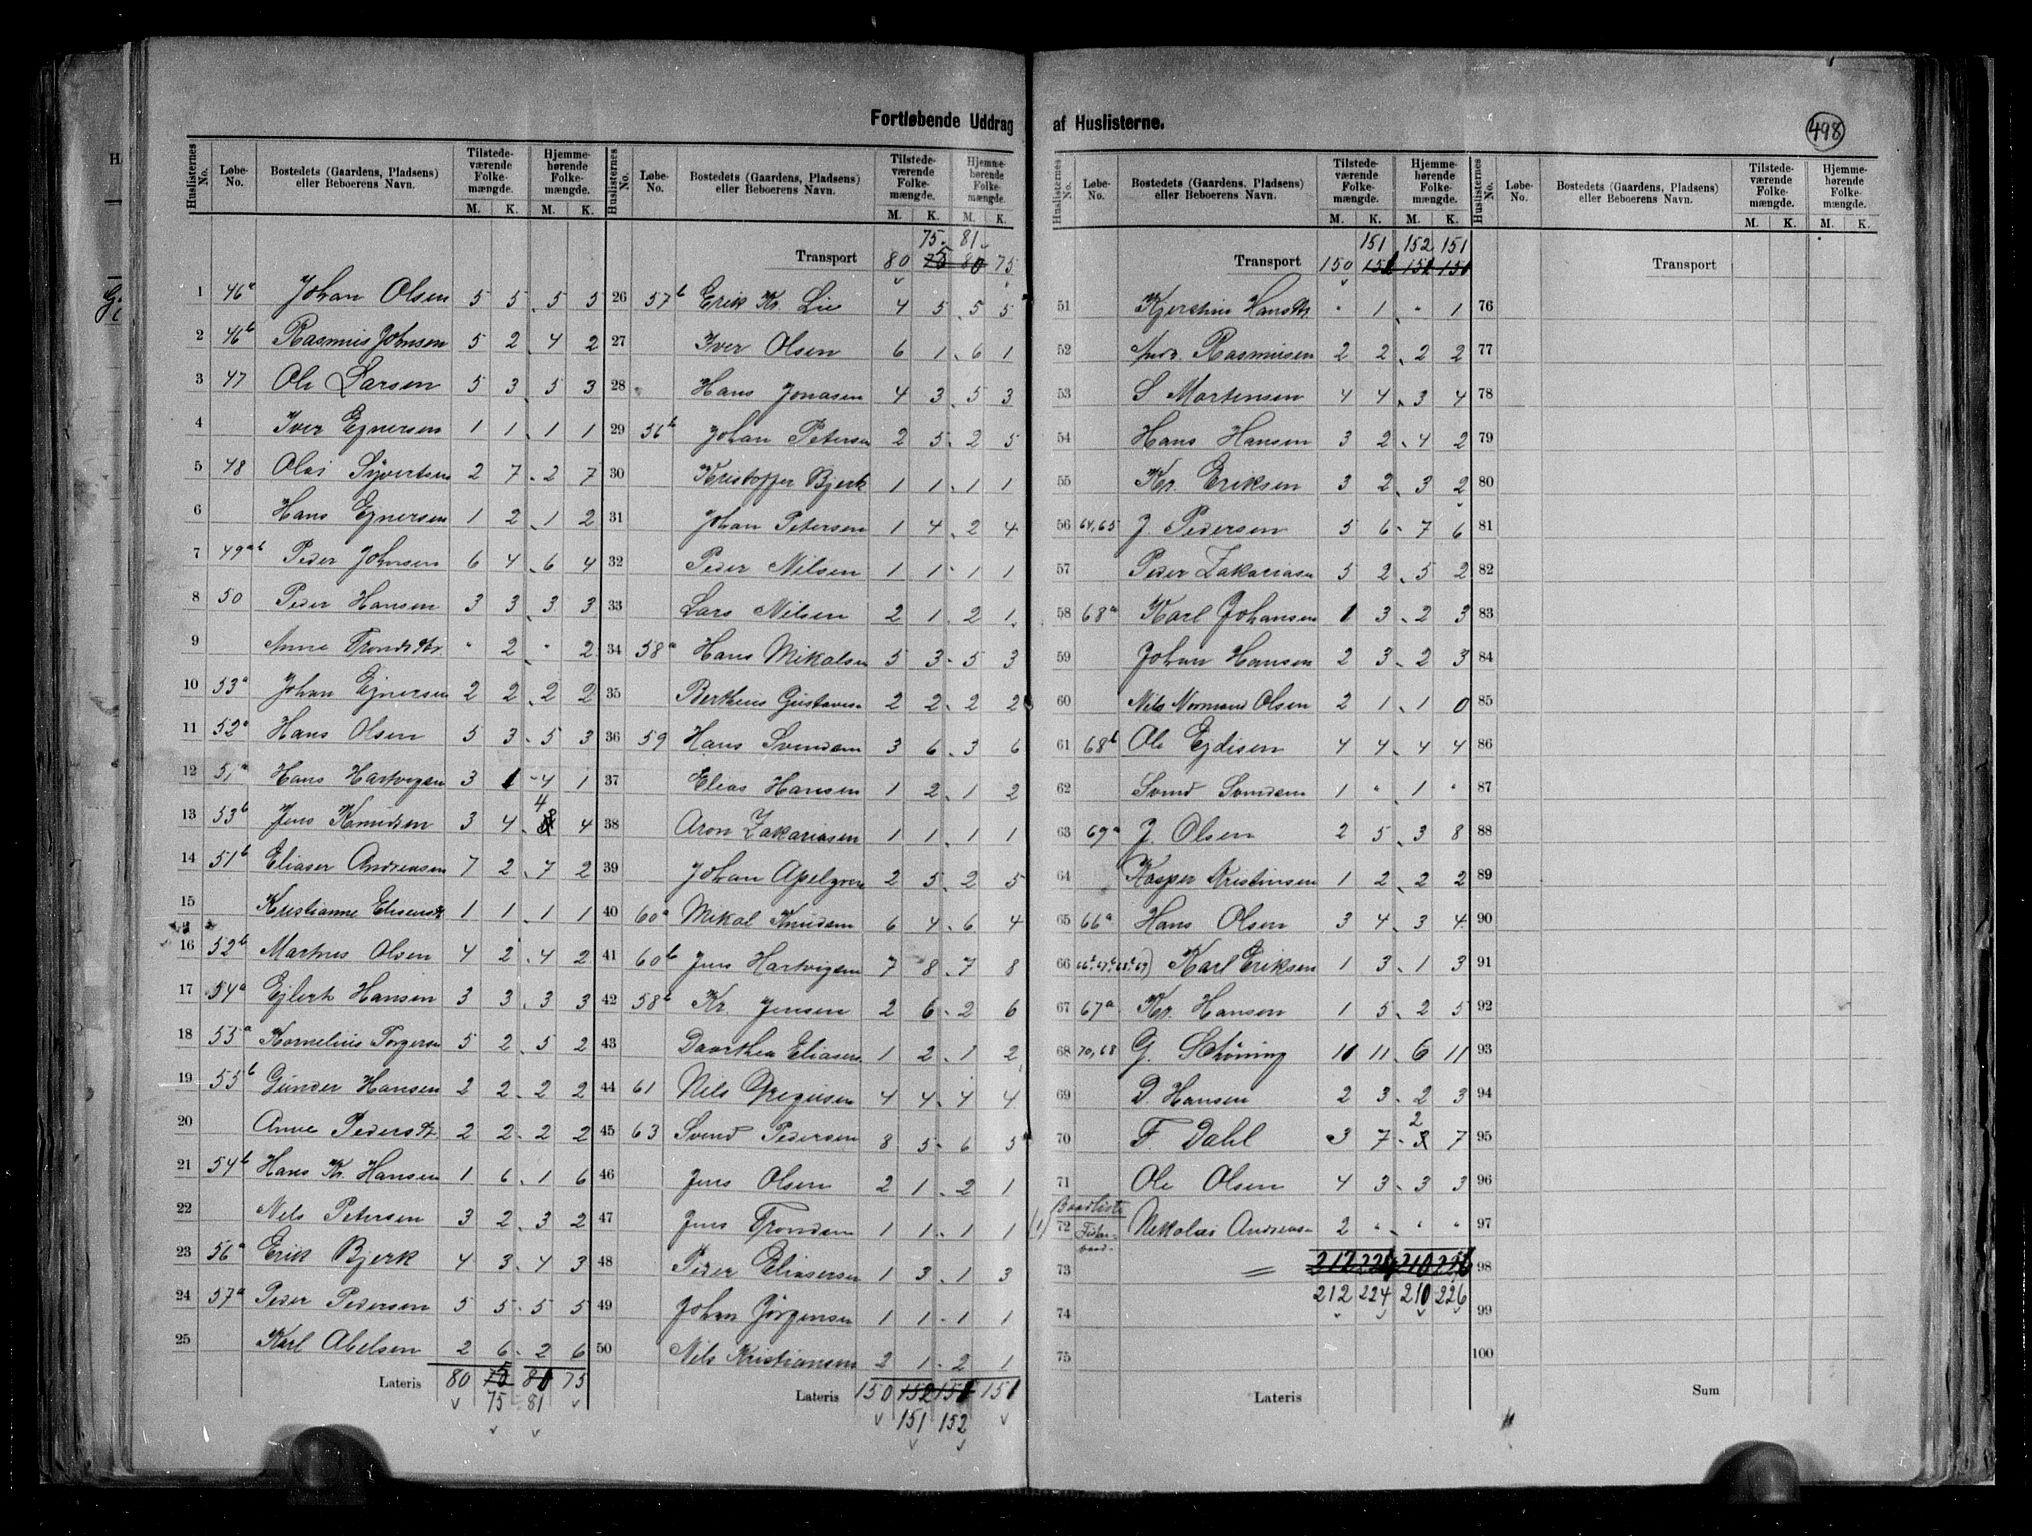 Fortløbende Uddrag af Huslisterne.
498
Huslisternes No. Løbe-No. Bostedets (Gaardens, Pladsens) eller Beboerens Navn. Tilstedeværende Folkemængde. M. K. Hjemmehørende Folkemængde. M. K.
1 46a Johan Olsen 5 5 5 5
2 46b Rasmus Johnsen 5 2 4 2
3 47 Ole Larsen 5 3 5 3
4 Iver Ejnersen 1 1 1 1
5 48 Olai Syvertsen 2 7 2 7
6 Hans Ejnersen 1 2 1 2
7 49ab Peder Johnsen 6 4 6 4
8 50 Peder Hansen 3 3 3 3
9 Anne Trondsdtr. " 2 " 2
10 53a Johan Ejnersen 2 2 2 2
11 52a Hans Olsen 5 3 5 3
12 51a Hans Hartvigsen 3 1 4 1
13 53b Jens Knudsen 3 4 4 4
14 51b Eliaser Andreasen 7 2 7 2
15 Kristianne Elisensdtr 1 1 1 1
16 52b Martnus Olsen 4 2 4 2
17 54a Ejlert Hansen 3 3 3 3
18 55a Kornelius Torgersen 5 2 5 2
19 55b Gunder Hansen 2 2 2 2
20 Anne Pedersdtr. 2 2 2 2
21 54b Hans Kr. Hansen 1 6 1 6
22 Nels Petersen 3 2 3 2
23 56a Erik Bjerk 4 3 4 3
24 57a Peder Pedersen 5 5 5 5
25 Karl Abelsen 2 6 2 6
Lateris 80 75 80 75
75 81
Huslisternes No. Løbe-No. Bostedets (Gaardens, Pladsens) eller Beboerens Navn. Tilstedeværende Folkemængde. M. K. Hjemmehørende Folkemængde. M. K.
75 81
Transport 80 75 80 75
26 57b Erik Kr. Lie 4 5 5 5
27 Iver Olsen 6 1 6 1
28 Hans Jonasen 4 3 5 3
29 56b Johan Petersen 2 5 2 5
30 Kristoffer Bjerk 1 1 1 1
31 Johan Petersen 1 4 2 4
32 Peder Nilsen 1 1 1 1
33 Lars Nilsen 2 1 2 1
34 58a Hans Mikalsen 5 3 5 3
35 Bertheus Gustavsen 2 2 2 2
36 59 Hans Svendsen 3 6 3 6
37 Elias Hansen 1 2 1 2
38 Aron Zakariasen 1 1 1 1
39 Johan Apelgren 2 5 2 5
40 60a Mikal Knudsen 6 4 6 4
41 60b Jens Hartvigsen 7 8 7 8
42 58b Kr. Jensen 2 6 2 6
43 Daarthea Eliasen 1 2 1 2
44 61 Nels Gregusen 4 4 4 4
45 63 Svend Pedersen 8 5 6 5
46 Jens Olsen 2 1 2 1
47 Jens Trondsen 1 1 1 1
48 Peder Eliasersen 1 3 1 3
49 Johan Jörgensen 1 1 1 1
50 Nels Kristiansen 2 1 2 1
Lateris 150 152 151 151
151 152
Huslisternes No. Løbe-No. Bostedets (Gaardens, Pladsens) eller Beboerens Navn. Tilstedeværende Folkemængde. M. K. Hjemmehørende Folkemængde. M. K.
151 152 151
Transport 150 152 152 151
51 Kjerstine Hansdtr. " 1 " 1
52 Andr. Rasmusen 2 2 2 2
53 S Mortensen 4 4 3 4
54 Hans Hansen 3 2 4 2
55 Kr. Eriksen 3 2 3 2
56 64,65 J. Pedersen 5 6 7 6
57 Peder Zakariasen 5 2 5 2
58 68a Karl Johansen 1 3 2 3
59 Johan Hansen 2 3 2 3
60 Nils Normand Olsen 2 1 1 0
61 68b Ole Ejdisen 4 4 4 4
62 Svend Svendsen 1 " 1 "
63 69a J. Olsen 2 5 3 8
64 Kasper Kristinsen 1 2 2 2
65 66a Hans Olsen 3 4 3 4
66 Karl Eriksen 1 3 1 3
67 67a Kr. Hansen 1 5 2 5
68 70,68 G. Schöning 10 11 6 11
69 D. Hansen 2 3 2 3
70 F. Dahl 3 7 2 7
71 Ole Olsen 4 3 3 3
Baadliste
(1) 72 Fiskerbaad Nikolai Andreas. 2 " " "
73 = 212 224 210 226
212 224 210 226
74
75
Lateris
Huslisternes No. Løbe-No. Bostedets (Gaardens, Pladsens) eller Beboerens Navn. Tilstedeværende Folkemængde. M. K. Hjemmehørende Folkemængde. M. K.
Transport
76
77
78
79
80
81
82
83
84
85
86
87
88
89
90
91
92
93
94
95
96
97
98
99
100
Sum